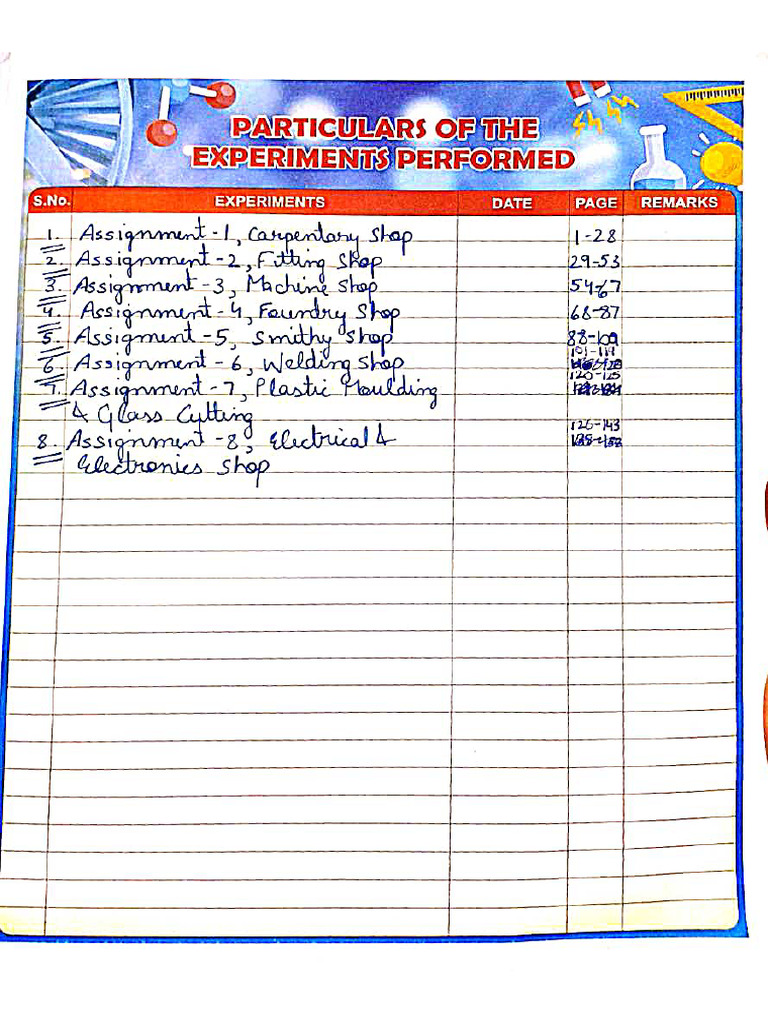 PARTICULARS OF THE
EXPERIMENTS PERFORMED
S.No. EXPERIMENTS DATE PAGE REMARKS
1. Assignment -1, Carpentary Shop 1-28
2. Assignment -2, Fitting Shop 29-53
3. Assignment -3, Machine Shop 54-67
4. Assignment -4, Foundry Shop 68-87
5. Assigment -5, Smithy Shop 88-109
6. Assignment -6, Welding Shop
7. Assignment -7, Plastic Moulding 120-125
& Glass Cutting
126-143
8. Assignment -8, Electrical &
Electronics Shop